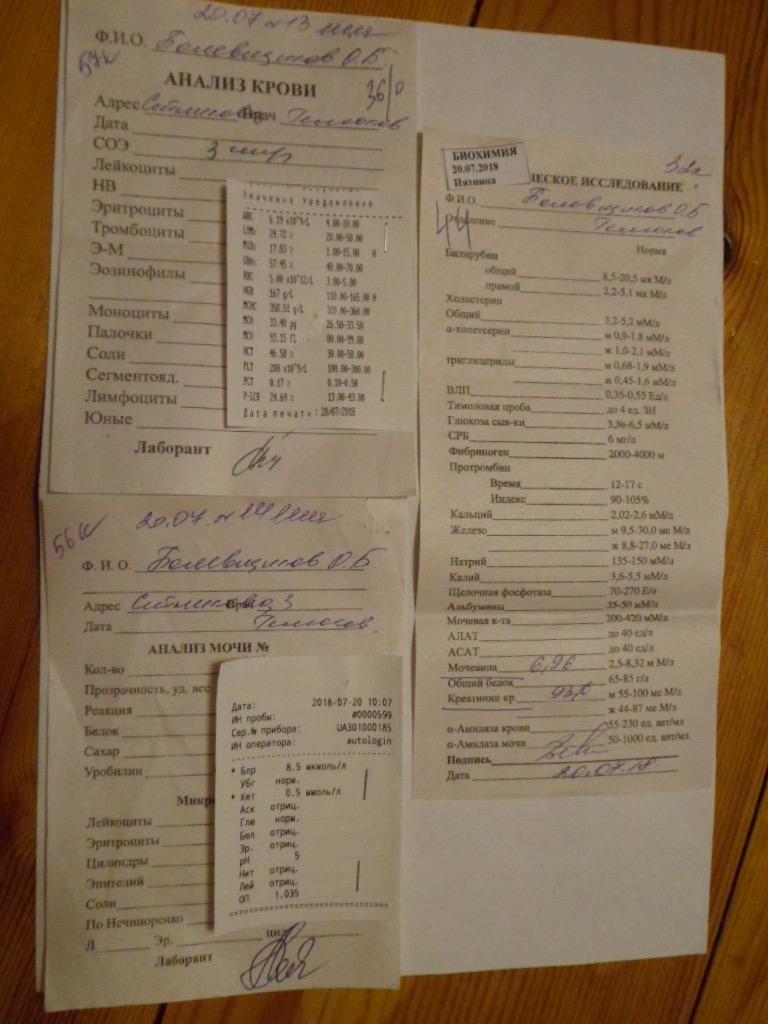 20.07 №13
Ф.И.О. Болевщиков О.Б.
57к
АНАЛИЗ КРОВИ
36/0
Адрес
Дата
СОЭ 3
Лейкоциты
НВ
Эритроциты
Тромбоциты
Э-М
Эозинофилы
Моноциты
Палочки
Соли
Сегментояд.
Лимфоциты
Юные
Лаборант
Значения Уведомление
WBC 6.19 x10^9/L 4.00-10.00
LYM% 24.72 % 20.00-50.00
MID% 17.83 % 1.00-15.00 H
GRA% 57.45 % 40.00-70.00
RBC 5.00 x10^12/L 3.80-5.80
HGB 167 g/L 110.00-165.00 H
MCHC 358.51 g/L 320.00-360.00
MCH 33.40 pg 26.50-33.50
MCV 93.15 fl 80.00-99.00
HCT 46.58 % 30.00-50.00
PLT 208 x10^9/L 100.00-300.00
PCT 0.17 % 0.10-0.50
P-LCR 24.69 % 13.00-43.00
Дата печати: 20/07/2018
20.07. №14
56к
Ф. И. О. Болевщиков О.Б
Адрес
Дата
АНАЛИЗ МОЧИ №
Кол-во
Прозрачность, уд. вес
Реакция
Белок
Сахар
Уробилин
Микро
Лейкоциты
Эритроциты
Цилиндры
Эпителий
Соли
По Нечипоренко
Л Эр. цил
Лаборант
Дата: 2018-07-20 10:07
ИН пробы: #0000599
Сер.№ прибора: UA301000185
ИН оператора: autologin
* Блр 8.5 мкмоль/л
Убг норм.
* Кет 0.5 ммоль/л
Аск отриц.
Глю норм.
Бел отриц.
Эр. отриц.
pH 5
Нит отриц.
Лей отриц.
ОП 1.035
БИОХИМИЯ
20.07.2018
Пятница
ЧЕСКОЕ ИССЛЕДОВАНИЕ
Ф.И.О. Болевщиков О.Б
44
Отделение
Норма
Билирубин
общий 8,5-20,5 мк М/л
прямой 2,2-5,1 мк М/л
Холестерин
Общий 3,2-5,2 мМ/л
α-холетсерин м 0,9-1,8 мМ/л
ж 1,0-2,1 мМ/л
триглицериды м 0,68-1,9 мМ/л
ж 0,45-1,6 мМ/л
ВЛП 0,35-0,55 Ед/л
Тимоловая проба до 4 ед. ЗН
Глюкоза сыв-ки 3,№-6,5 мМ/л
СРБ 6 мг/л
Фибриноген 2000-4000 м
Протромбин
Время 12-17 с
Индекс 90-105%
Кальций 2,02-2,6 мМ/л
Железо м 9,5-30,0 мс М/л
ж 8,8-27,0 мс М/л
Натрий 135-150 мМ/л
Калий 3,6-5,5 мМ/л
Щелочная фосфотаза 70-270 Е/л
Альбумины 35-50 мМ/л
Мочевая к-та 200-420 мМ/л
АЛАТ до 40 ед/л
АСАТ до 40 ед/л
Мочевина 6,96 2,5-8,32 м М/л
Общий белок 65-85 г/л
Креатинин кр. 93,0 м 55-100 мс М/л
ж 44-87 мс М/л
α-Амилаза крови 55-230 ед. акт/мл
α-Амилаза мочи 50-1000 ед. акт/мл
Подпись
Дата 20.07.18